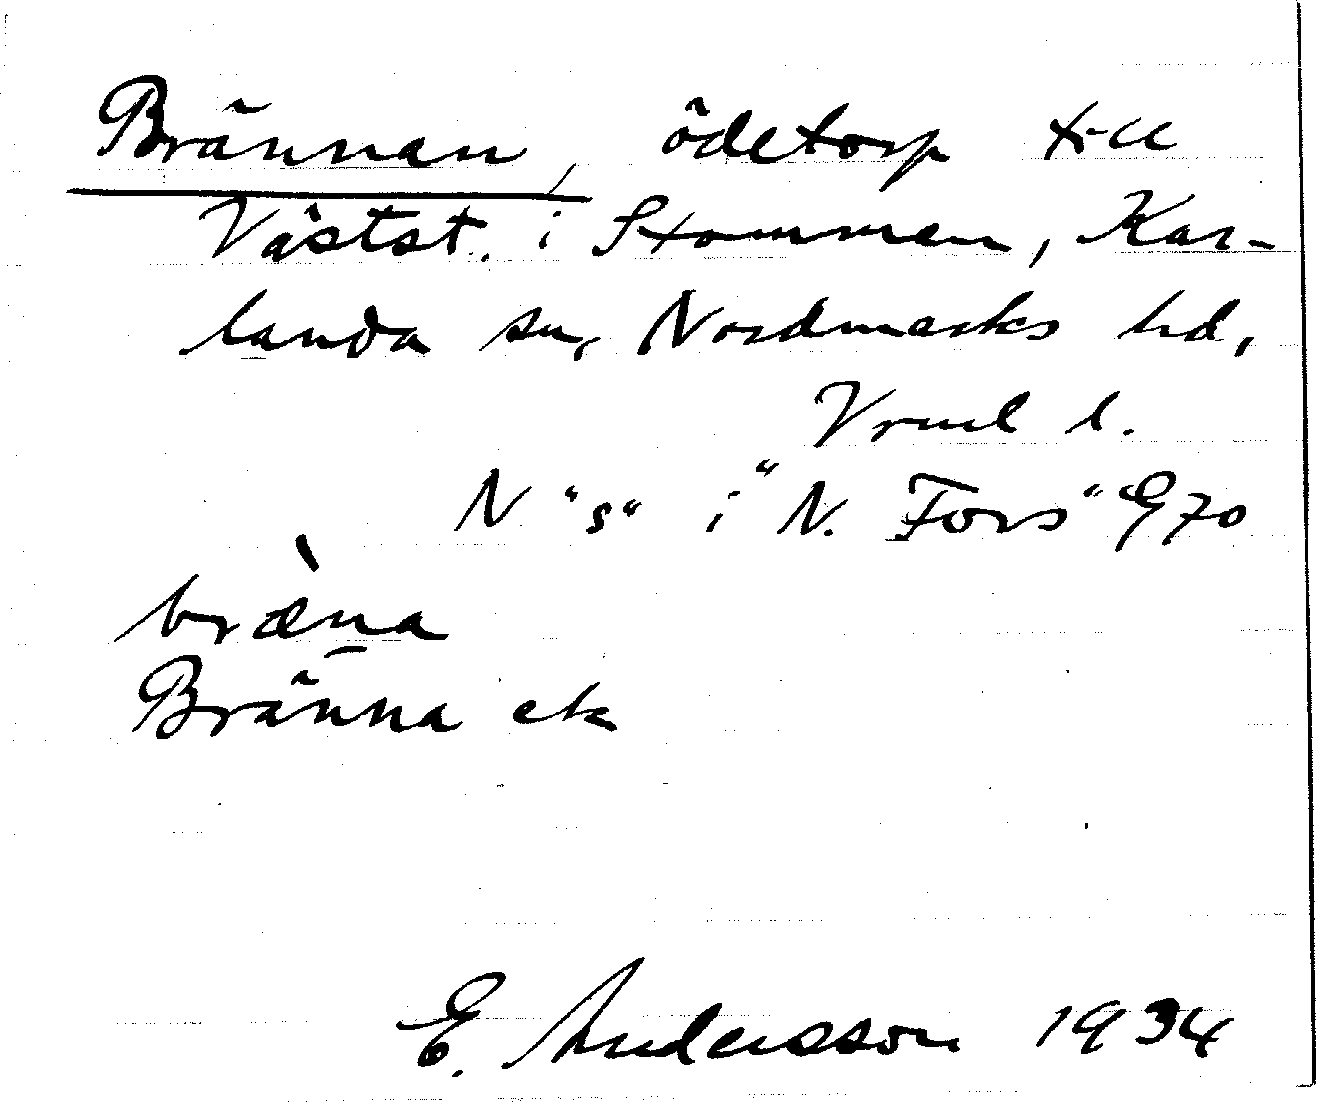 Brännan, ödetorp till
Västst. i Stommen, Kar-
landa sn, Nordmarks hd,
Vrml l.
N "s" i "N. Fors" G70
bræ̀na
Bränna ek
E. Andersson 1934